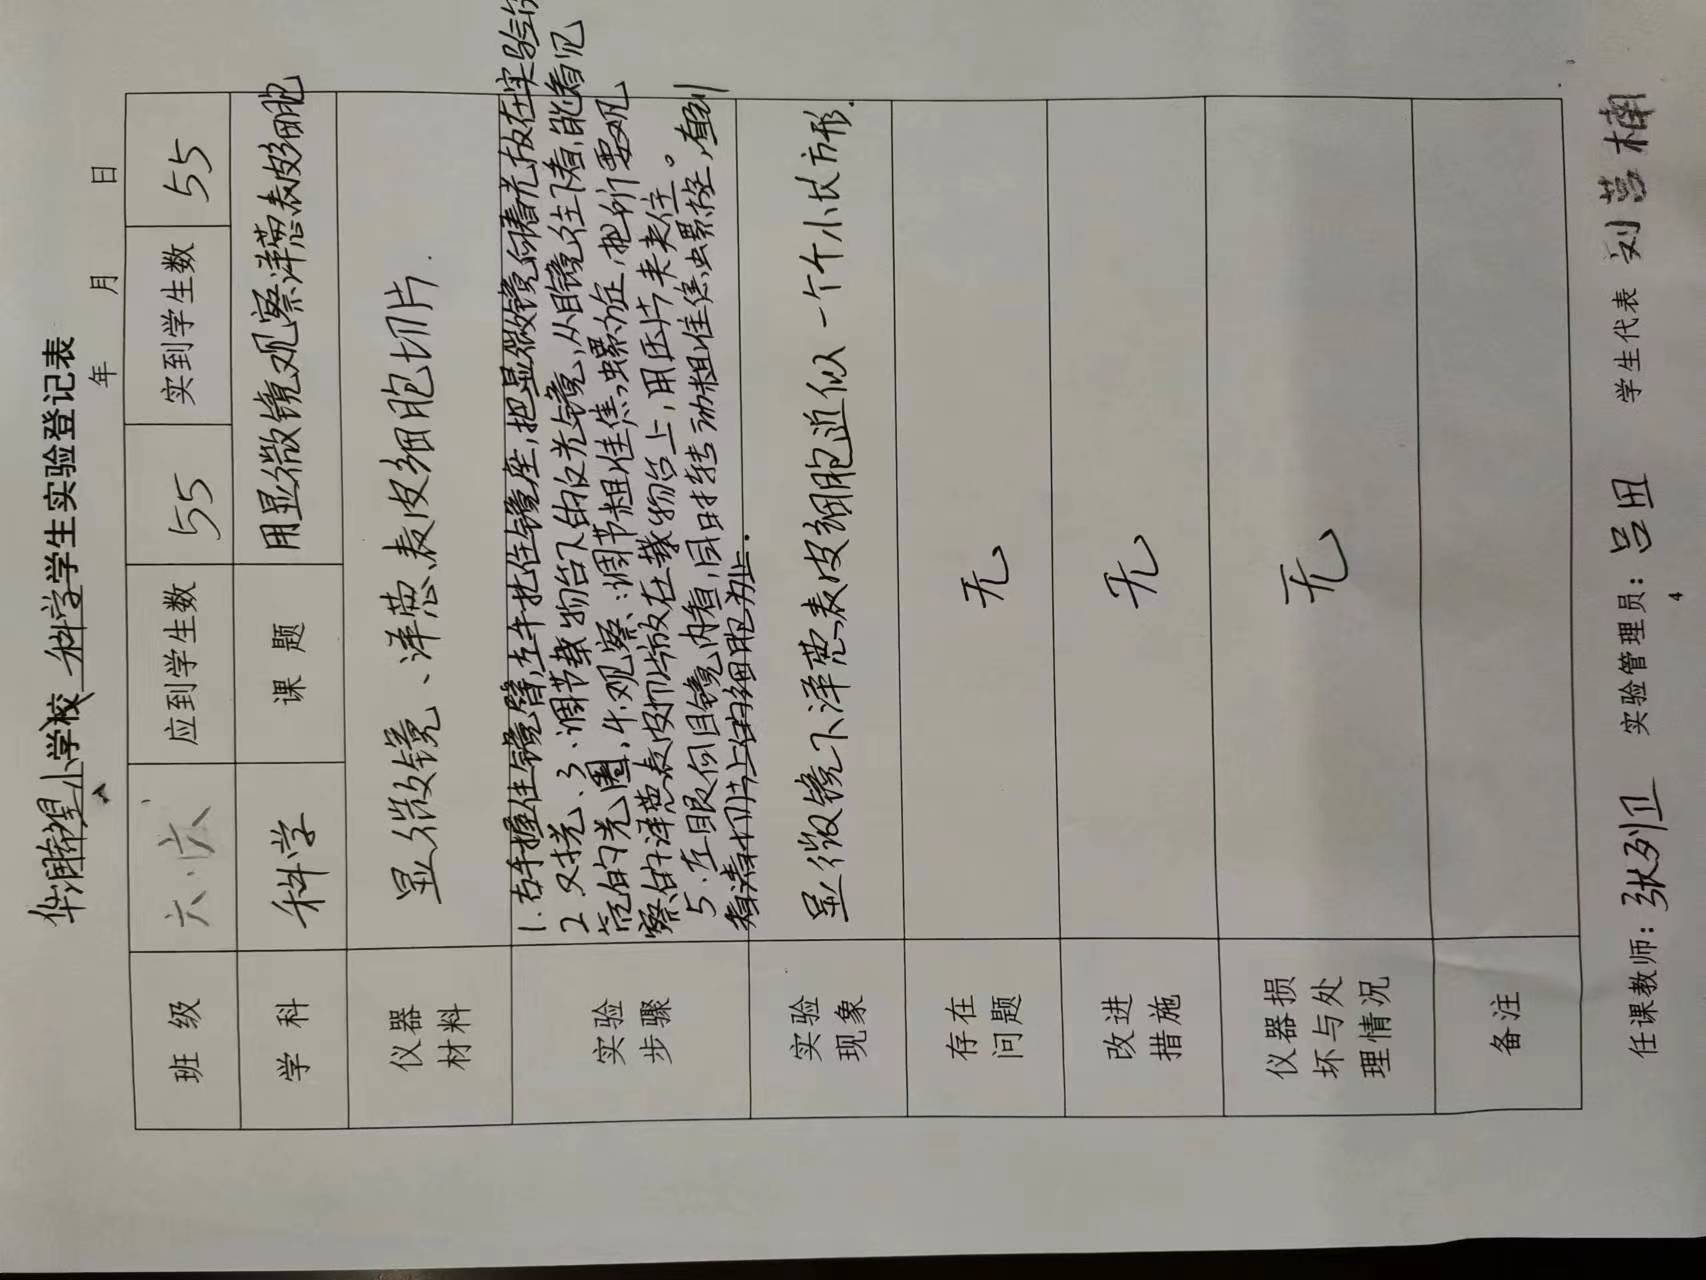 华润希望小学校 科学 学生实验登记表
年 月 日
班 级 六.六 应到学生数 55 实到学生数 55
学 科 科学 课 题 用显微镜观察洋葱表皮细胞
仪器 材料 显微镜、洋葱表皮细胞切片.
实验 步骤
1.右手握住镜臂,左手托住镜座,把显微镜向着光,放在实验台
2.对光、3、调节载物台下的反光镜,从目镜往下看,能看见
亮的光圈,4.观察:调节粗准焦螺旋,把所要观
察的洋葱表皮切片放在载物台上,用压片夹夹住。
5.左眼向目镜内看,同时转动粗准焦螺旋,直到
看清切片上的细胞为止.
实验 现象 显微镜下洋葱表皮细胞近似一个个小长方形.
存在 问题 无
改进 措施 无
仪器损 坏与处 理情况 无
备注
任课教师: 张列卫 实验管理员: 吕田 学生代表 刘芸楠
4